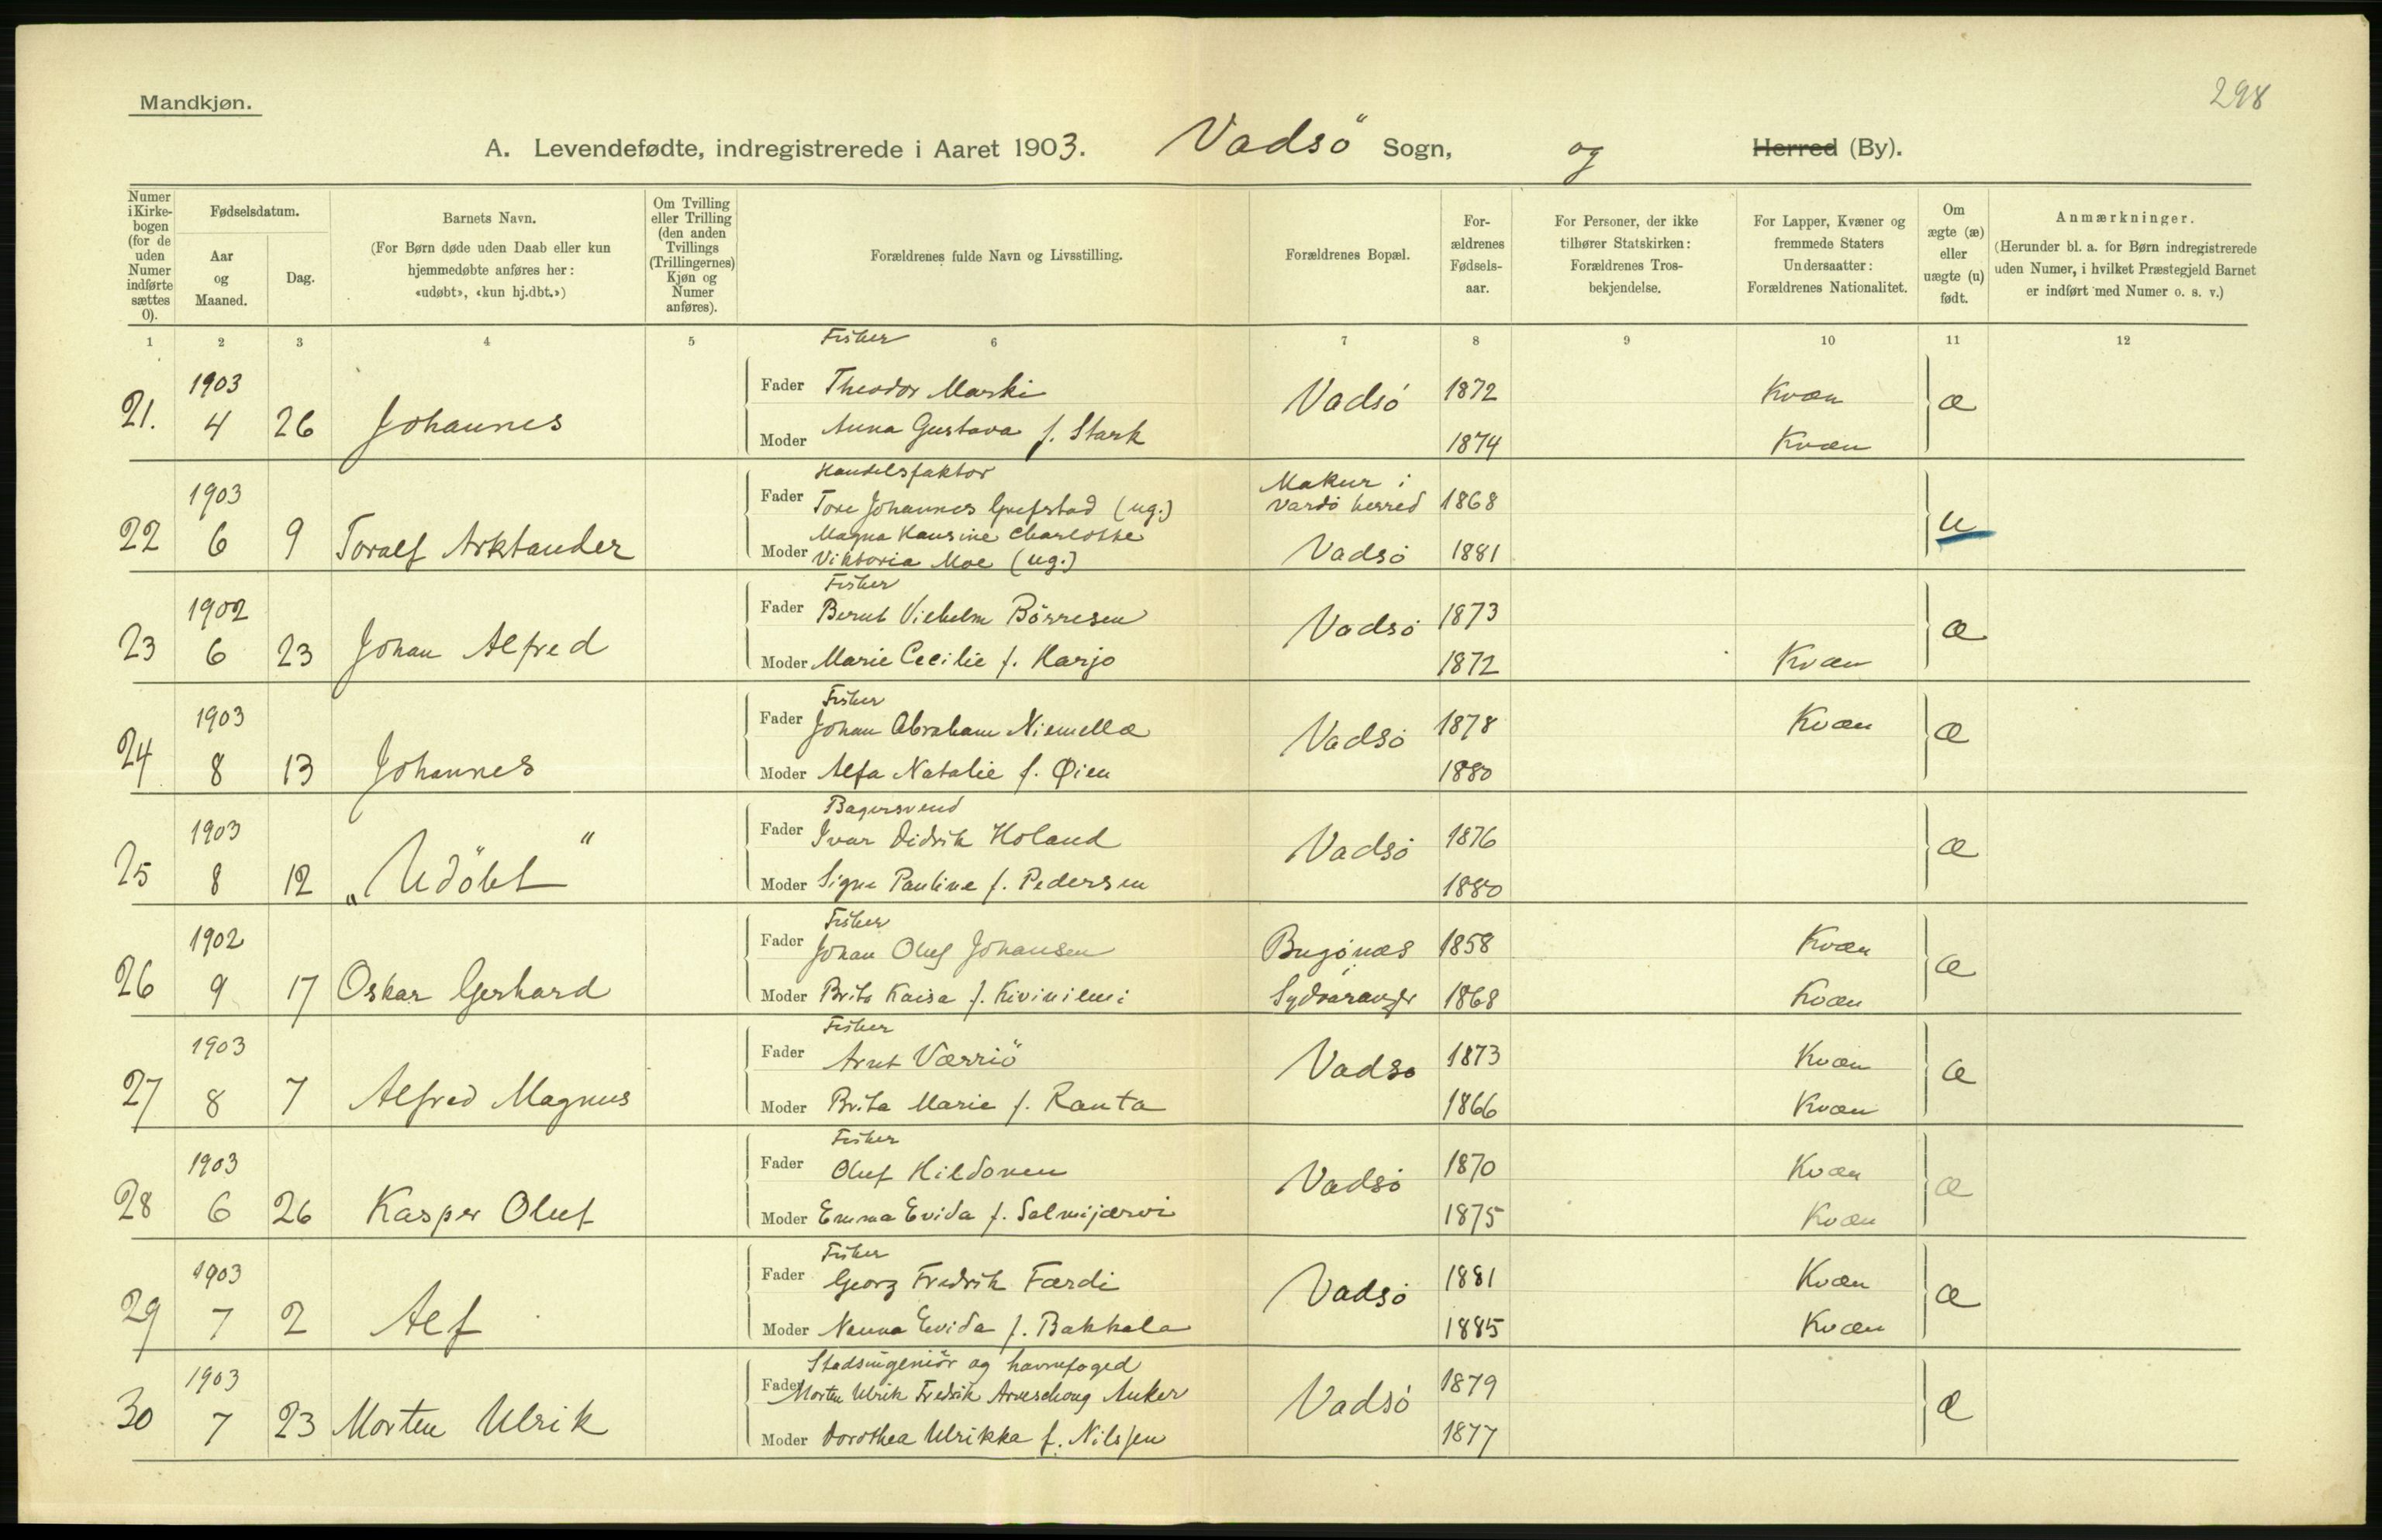 298
Mandkjøn.
A. Levendefødte, indregistrerede i Aaret 1903. Vadsö Sogn, og Herred (By).
Numer i Kirke- bogen (for de uden Numer indførte sættes 0).
Fødselsdatum.
Aar og Maaned.
Dag.
Barnets Navn.
(For Børn døde uden Daab eller kun hjemmedøbte anføres her: «udøbt», «kun hj.dbt.»)
Om Tvilling eller Trilling (den anden Tvillings (Trillingernes) Kjøn og Numer anføres).
Forældrenes fulde Navn og Livsstilling.
Forældrenes Bopæl.
For- ældrenes Fødsels- aar.
For Personer, der ikke tilhører Statskirken: Forældrenes Tros- bekjendelse.
For Lapper, Kvæner og fremmede Staters Undersaatter: Forældrenes Nationalitet.
Om ægte (æ) eller uægte (u) født.
Anmærkninger.
(Herunder bl. a. for Børn indregistrerede uden Numer, i hvilket Præstegjeld Barnet er indført med Numer o. s. v.)
1 2 3 4 5 6 7 8 9 10 11 12
Fisker
21. 1903 4 26 Johannes
Fader Theodor Marki Vadsö 1872 Kvæn æ
Moder Anna Gustava f. Stark 1874 Kvæn
Handelsfaktor
22 1903 6 9 Toralf Arktander
Fader Tore Johannes Grefstad (ug.) Makur i Vardö herred 1868 u
Moder Magna Hansine Charlotte Viktoria Moe (ug.) Vadsö 1881
Fisker
23 1902 6 23 Johan Alfred
Fader Bernt Vilhelm Börresen Vadsö 1873 æ
Moder Marie Cecilie f. Harjo 1872 Kvæn
Fisker
24 1903 8 13 Johannes
Fader Johan Abraham Niemella Vadsö 1878 Kvæn æ
Moder Alfa Natalie f. Øien 1880
Bagersvend
25 1903 8 12 „Udöbt"
Fader Ivar Didrik Holand Vadsö 1876 æ
Moder Signe Pauline f. Pedersen 1880
Fisker
26 1902 9 17 Oskar Gerhard
Fader Johan Oluf Johansen Bugönæs 1858 Kvæn æ
Moder Brita Kaisa f. Kiviniemi Sydvaranger 1868 Kvæn
Fisker
27 1903 8 7 Alfred Magnus
Fader Arnt Værriö Vadsö 1873 Kvæn æ
Moder Brita Marie f. Ranta 1866 Kvæn
Fisker
28 1903 6 26 Kasper Oluf
Fader Oluf Hildonen Vadsö 1870 Kvæn æ
Moder Emma Evida f. Salmijærvi 1875 Kvæn
Fisker
29 1903 7 2 Alf
Fader Georg Fredrik Færdi Vadsö 1881 Kvæn æ
Moder Nanna Evida f. Bakkala 1885 Kvæn
Stadsingeniör og havnefoged
30 1903 7 23 Morten Ulrik
Fader Morten Ulrik Fredrik Anker Vadsö 1879 æ
Moder Dorothea Ulrikka f. Nilssen 1877